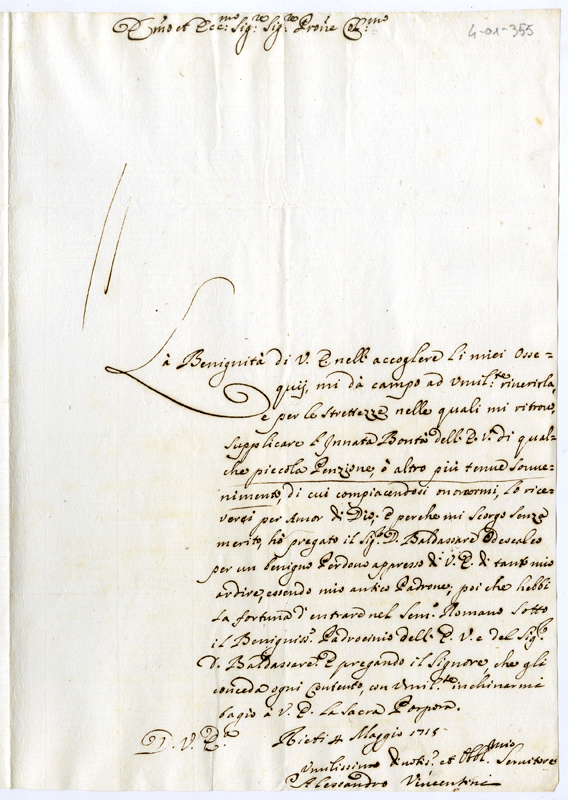 Em̃o et Ecc:mo Sig:re Sig:re Prone C:mo
4-01-355
La Benignità di V. E. nell'accoglere li miei osse=
quij, mi dà campo ad Vmil:te riuerirla,
e per le strettezze nelle quali mi ritrouo,
supplicare l'Innata Bontà dell'E. V. di qual=
che piccola Penzione, ò altro più tenue souue=
nimento, di cui compiacendosi onorarmi, lo rice=
verei per Amor di Dio; E perche mi scorgo senza
merito, hò pregato il Sig:r D. Baldassare Odescalco
per un benigno Perdono appresso di V. E. di tanto mio
ardire, essendo mio antico Padrone; poi che hebbi
la fortuna d'entrare nel Sem:o Romano sotto
il Beniguiss:o Padrocinio dell'E. V. e del Sig:r
D. Baldassare. E pregando il Signore, che gli
conceda ogni Contento, con Vmil:te inchinarmi
bagio à V. E. la Sacra Porpora.
D. V. E. Rieti 4 Maggio 1715
Vmilissimo Diuotis:o et Obbl:mo Seruitore
Alessandro Vincentini